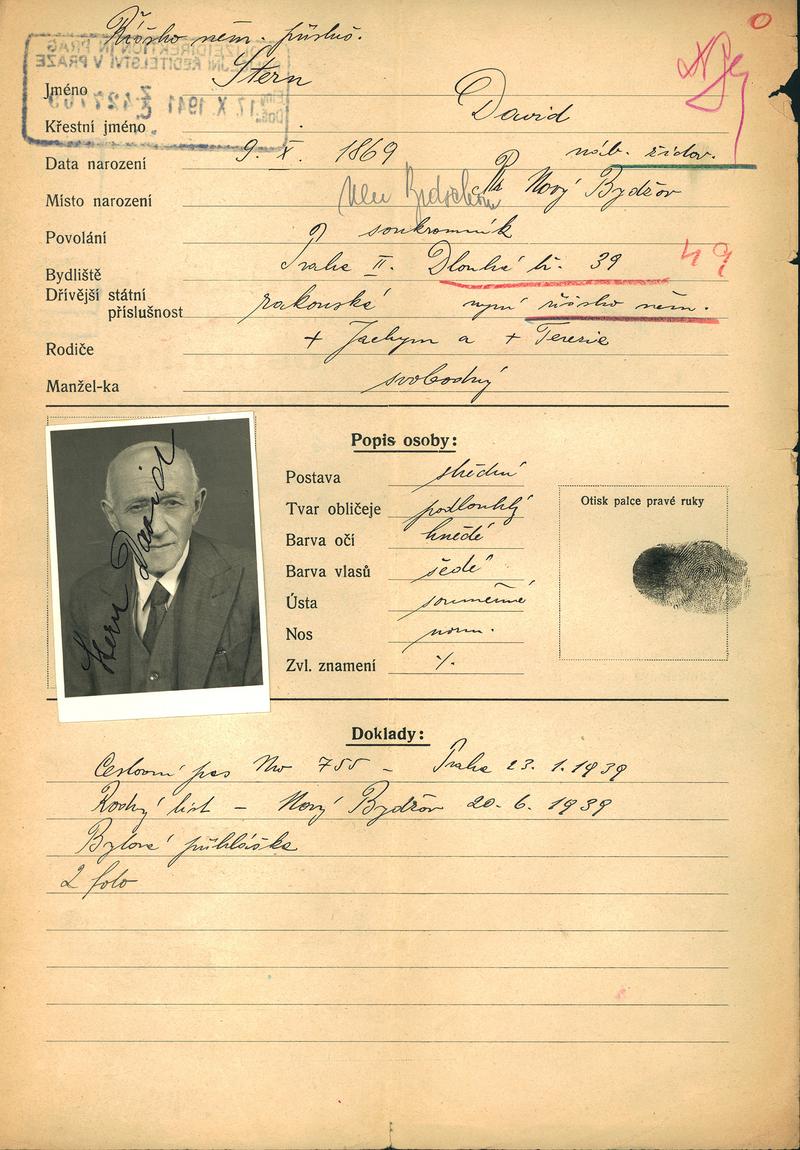 Říšsko něm. přísluš.
POLIZEIDIREKTION IN PRAG
POLICEJNÍ ŘEDITELSTVÍ V PRAZE
17. X. 1941
Jméno Stern
Křestní jméno David
Data narození 9. X. 1869 náb. židov.
Místo narození Neu Bydschow Nový Bydžov
Povolání soukromník
Bydliště Praha II. Dlouhá tř. 39 49
Dřívější státní
příslušnost rakouská nyní říšsko něm.
Rodiče + Jachym a + Terezie
Manžel-ka svobodný
Popis osoby:
Postava střední
Tvar obličeje podlouhlý
Barva očí hnědé
Barva vlasů šedé
Ústa souměrné
Nos norm.
Zvl. znamení ·/.
Otisk palce pravé ruky
Stern David
Doklady:
Cestovní pas No 755 – Praha 23. 1. 1939
Rodný list – Nový Bydžov 20. 6. 1939
Bytová přihláška
2 foto